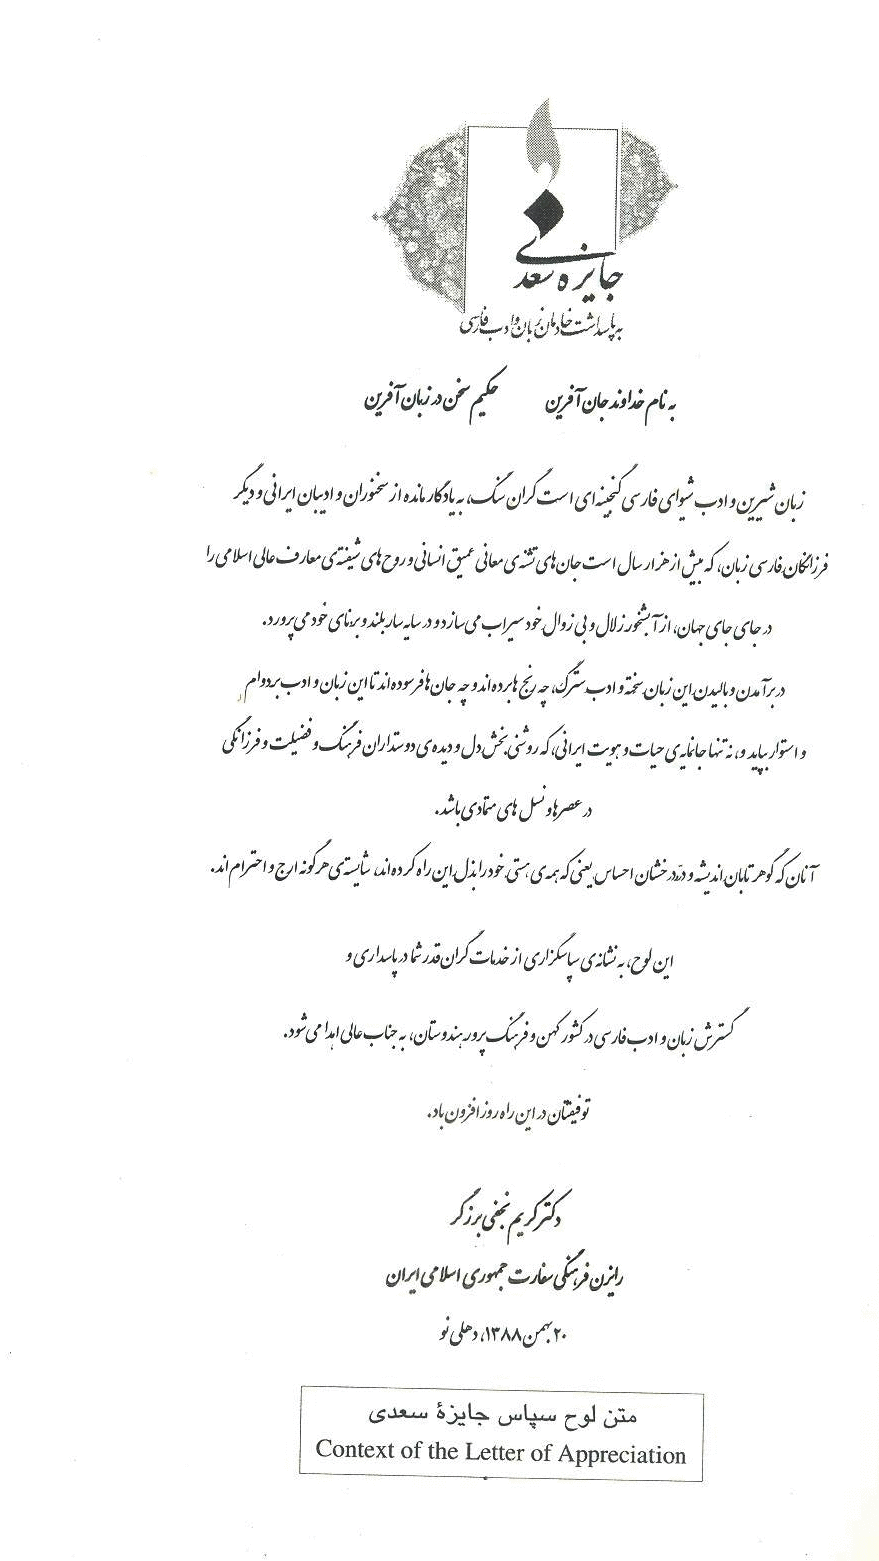 جایزه سعدی
به پاسداشت خادمان زبان و ادب فارسی
به نام خداوند جان آفرین حکیم سخن در زبان آفرین
زبان شیرین و ادب شیوای فارسی گنجینه ای است گران سنگ، به یادگار مانده از سخنوران و ادیبان ایرانی و دیگر
فرزانگان فارسی زبان، که بیش از هزار سال است جان های تشنه ی معانی عمیق انسانی و روح های شیفته ی معارف عالی اسلامی را
در جای جای جهان، از آبشخور زلال و بی زوال خود سیراب می سازد و در سایه سار بلند و برنای خود می پرورد.
در برآمدن و بالیدن این زبان سخته و ادب سترگ، چه رنج ها برده اند و چه جان ها فرسوده اند تا این زبان و ادب بر دوام
و استوار بپاید و، نه تنها جانمایه ی حیات و هویت ایرانی، که روشنی بخش دل و دیده ی دوستداران فرهنگ و فضیلت و فرزانگی
در عصرها و نسل های متمادی باشد.
آنان که گوهر تابان اندیشه و درّ درخشان احساس یعنی که همه ی هستی خود را بذل این راه کرده اند، شایسته ی هرگونه ارج و احترام اند.
این لوح، به نشانه ی سپاسگزاری از خدمات گران قدر شما در پاسداری و
گسترش زبان و ادب فارسی در کشور کهن و فرهنگ پرور هندوستان، به جناب عالی اهدا می شود.
توفیقتان در این راه روز افزون باد.
دکتر کریم نجفی برزگر
رایزن فرهنگی سفارت جمهوری اسلامی ایران
۲۰ بهمن ۱۳۸۸، دهلی نو
متن لوح سپاس جایزهٔ سعدی
Context of the Letter of Appreciation